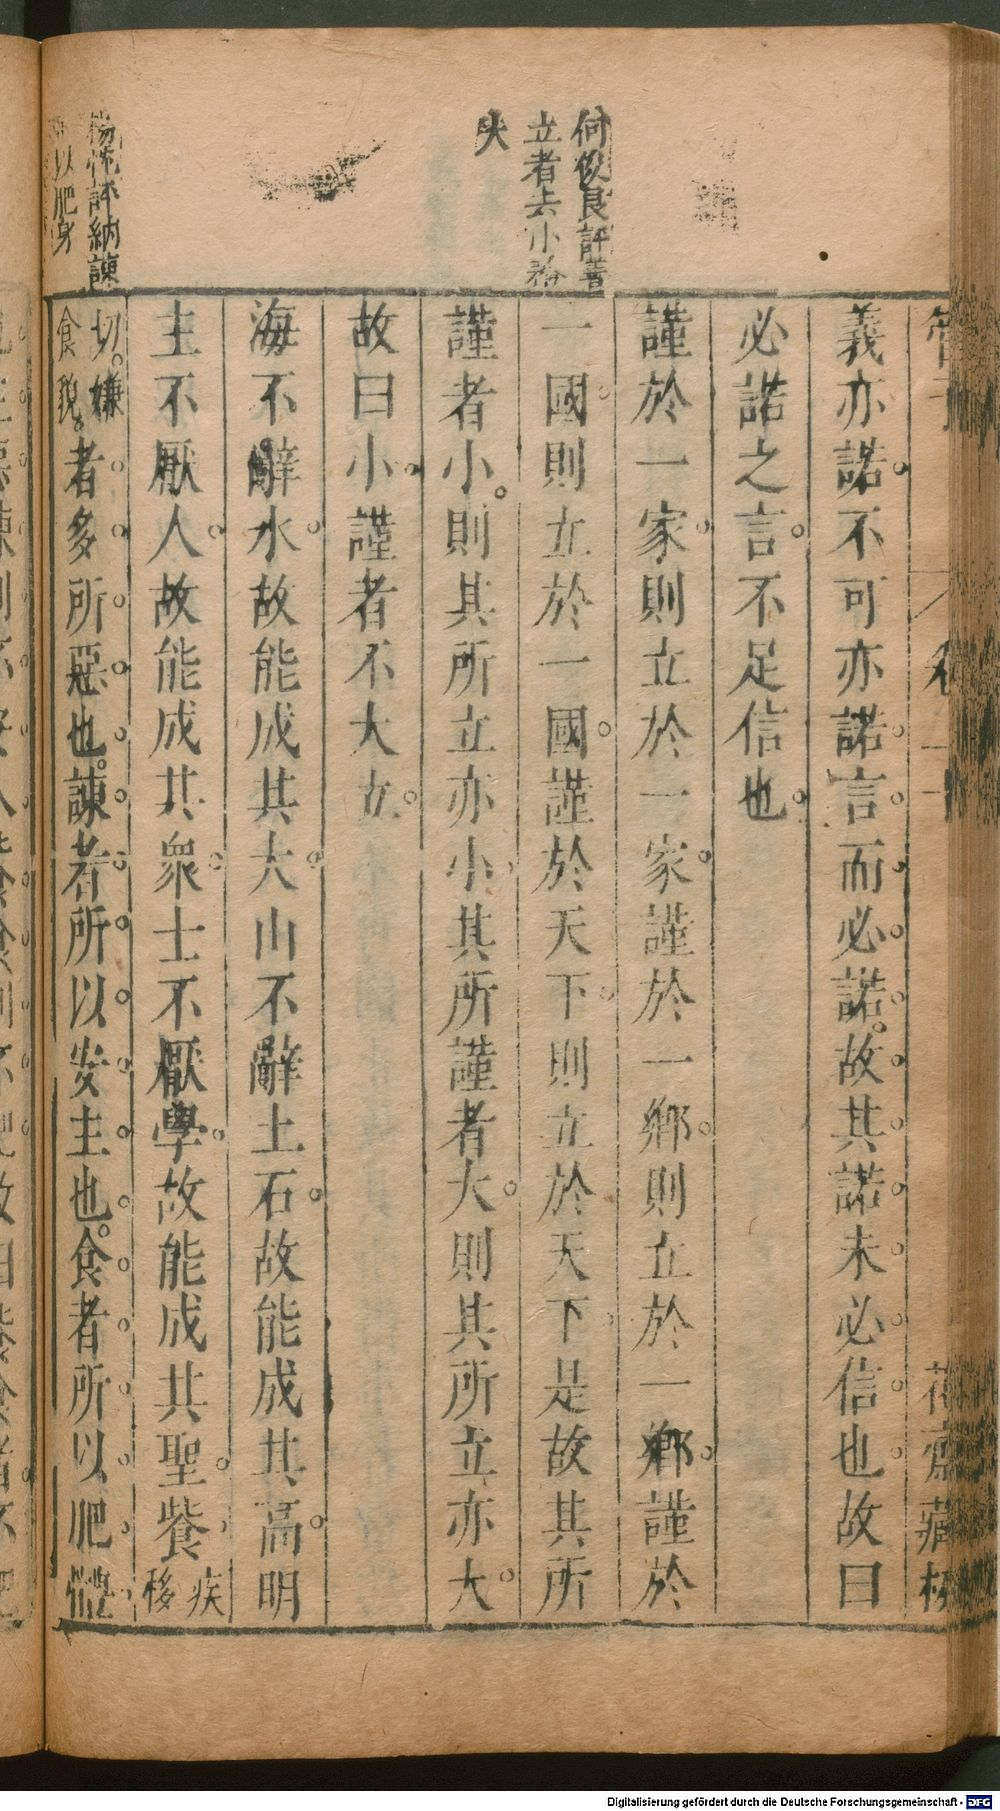 管子
花齋藏板
何俊良評
立者去小
夬
義亦諾不可亦諾言而必諾故其諾未必信也故曰
必諾之言不足信也
謹於一家則立於一家謹於一鄉則立於一鄉謹於
一國則立於一國謹於天下則立於天下是故其所
謹者小則其所立亦小其所謹者大則其所立亦大
故曰小謹者不大立
海不辭水故能成其大山不辭土石故能成其高明
主不厭人故能成其衆士不厭學故能成其聖飺疾移
切嫌食貌者多所惡也諫者所以安主也食者所以肥體
評納諫
以肥身
Digitalisierung gefördert durch die Deutsche Forschungsgemeinschaft - DFG